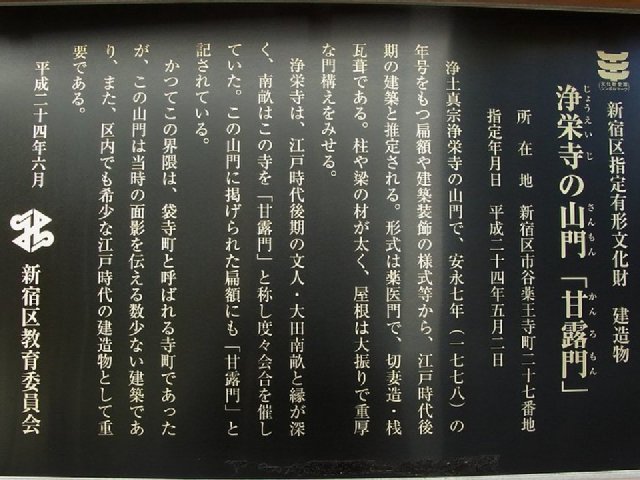 新宿区指定有形文化財　建造物
じょうえいじ　さんもん　かんろもん
浄栄寺の山門「甘露門」
所在地　新宿区市谷薬王寺町二十七番地
指定年月日　平成二十四年五月二日
浄土真宗浄栄寺の山門で、安永七年（一七七八）の
年号をもつ扁額や建築装飾の様式等から、江戸時代後
期の建築と推定される。形式は薬医門で、切妻造・桟
瓦葺である。柱や梁の材が太く、屋根は大振りで重厚
な門構えをみせる。
浄栄寺は、江戸時代後期の文人・大田南畝と縁が深
く、南畝はこの寺を「甘露門」と称し度々会合を催し
ていた。この山門に掲げられた扁額にも「甘露門」と
記されている。
かつてこの界隈は、袋寺町と呼ばれる寺町であった
が、この山門は当時の面影を伝える数少ない建築であ
り、また、区内でも希少な江戸時代の建造物として重
要である。
平成二十四年六月
新宿区教育委員会